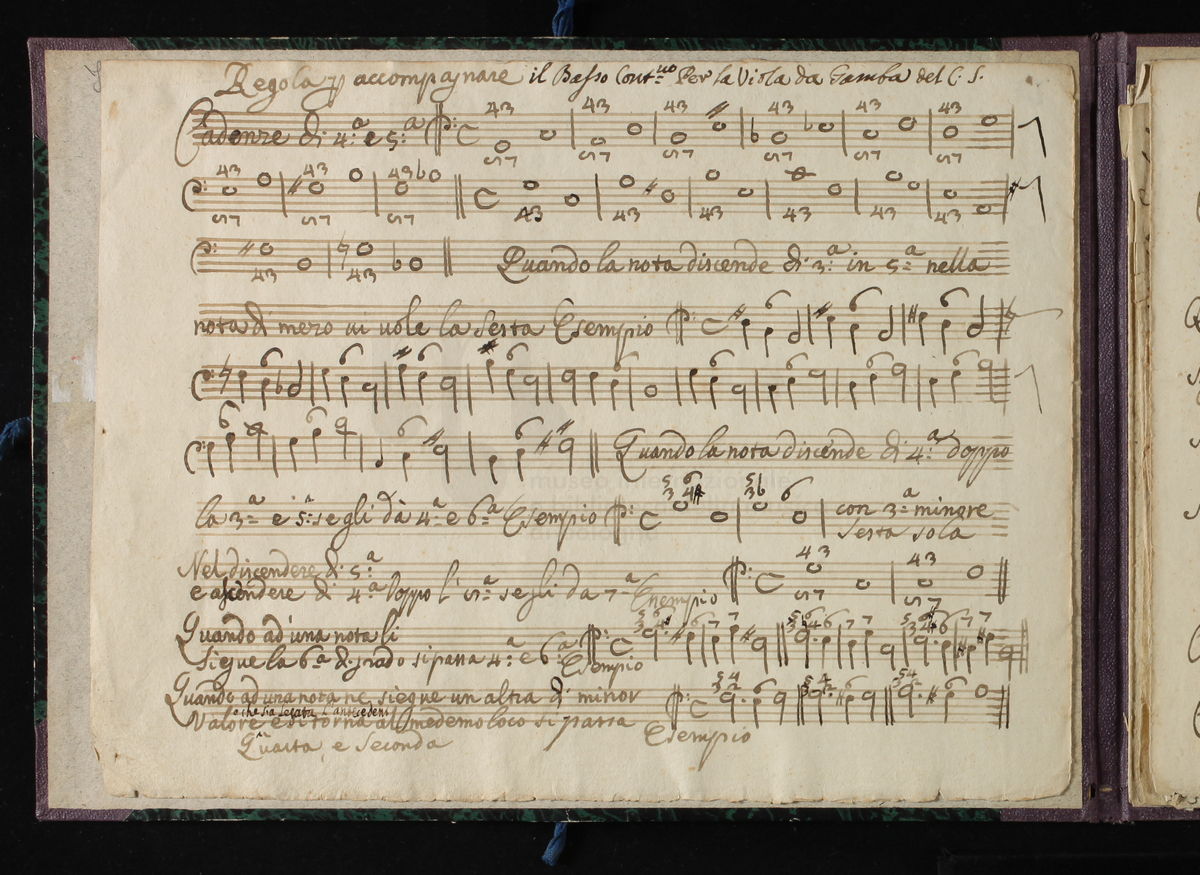 Regola p accompagnare il Basso Cont.uo Per la Viola da Gamba del C. S.
Cadenze di 4.a e 5.a
Quando la nota discende di 3.a in 5.a nella
nota di mezo vi vole la Sesta Esempio
Quando la nota discende di 4.a doppo
la 3.a e 5.a se gli dà 4.a e 6.a Esempio
con 3.a minore
sesta sola
Nel discendere di 5.a
e ascendere di 4.a Doppo l' 5.a se gli da 7.a Esempio
Quando ad una nota li
siegue la 6.a di grado si passa 4.a e 6.a Esempio
Quando ad una nota ne siegue un altra di minor
che sia legata l'antecedente
Valore e si torna al medemo loco si passa
Quarta e Seconda
Esempio